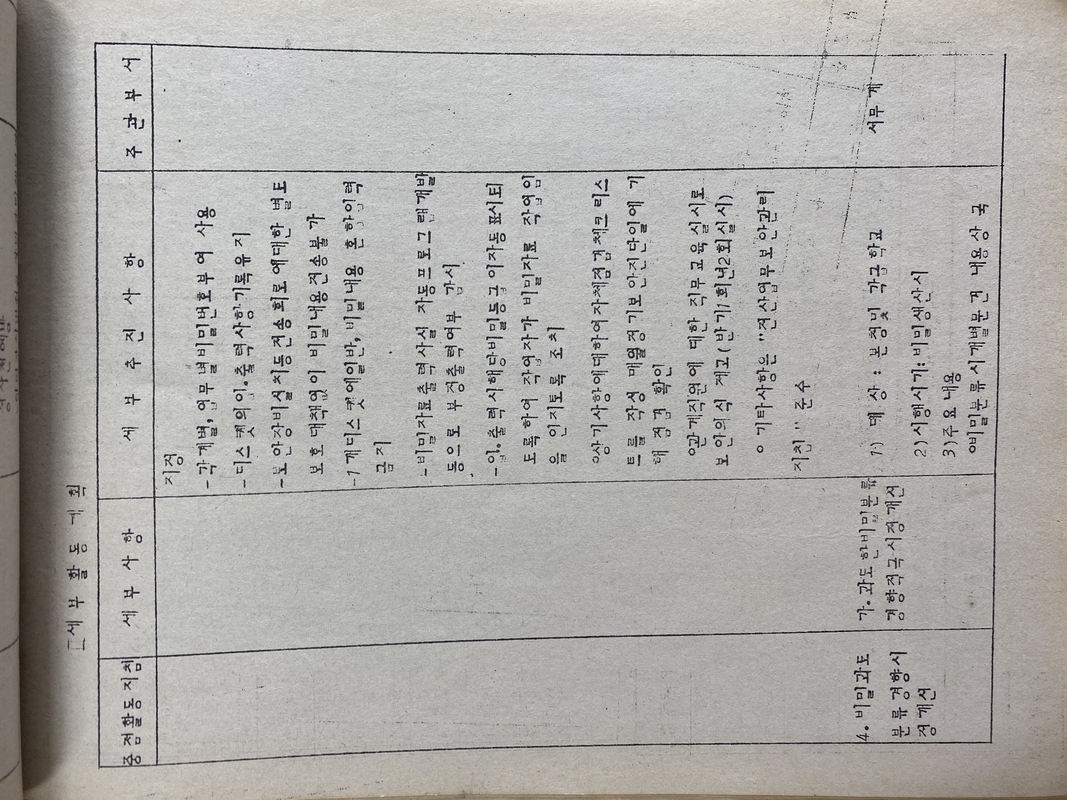 □세 부 활 동 계 획
중점활동지침
세 부 사 항
세 부 추 진 사 항
주 관 부 서
지정
-각개별,업무별비밀번호부여 사용
-디스켓의입·출력사항기록유지
-보안장비설치등전송회로에대한 별도
보호 대책없이 비밀내용전송불가
-1개디스켓에일반,비밀내용 혼합입력
금지
-비밀자료출력사실 자동프로그램개발
등으로 부정출력여부 감시
-입·출력시해당비밀등급이자동표시되
도록하여 작업자가 비밀자료 작업임
을 인지토록 조치
o상기사항에대하여자체점검체크리스
트를 작성 매월정기보안진단일에 기
해 점검 확인
o관계직원에 대한 직무교육실시로
보안의식 제고(반기1회년2회실시)
o 기타사항은 "전산업무보안관리
지침" 준수
4. 비밀과도
분류경향시
정개선
가. 과도한비밀분류
경향적극시정개선
1) 대 상 : 본청및 각급학교
2)시행시기:비밀생산시
3)주요내용
o비밀분류시개별문건 내용상 국
서무계